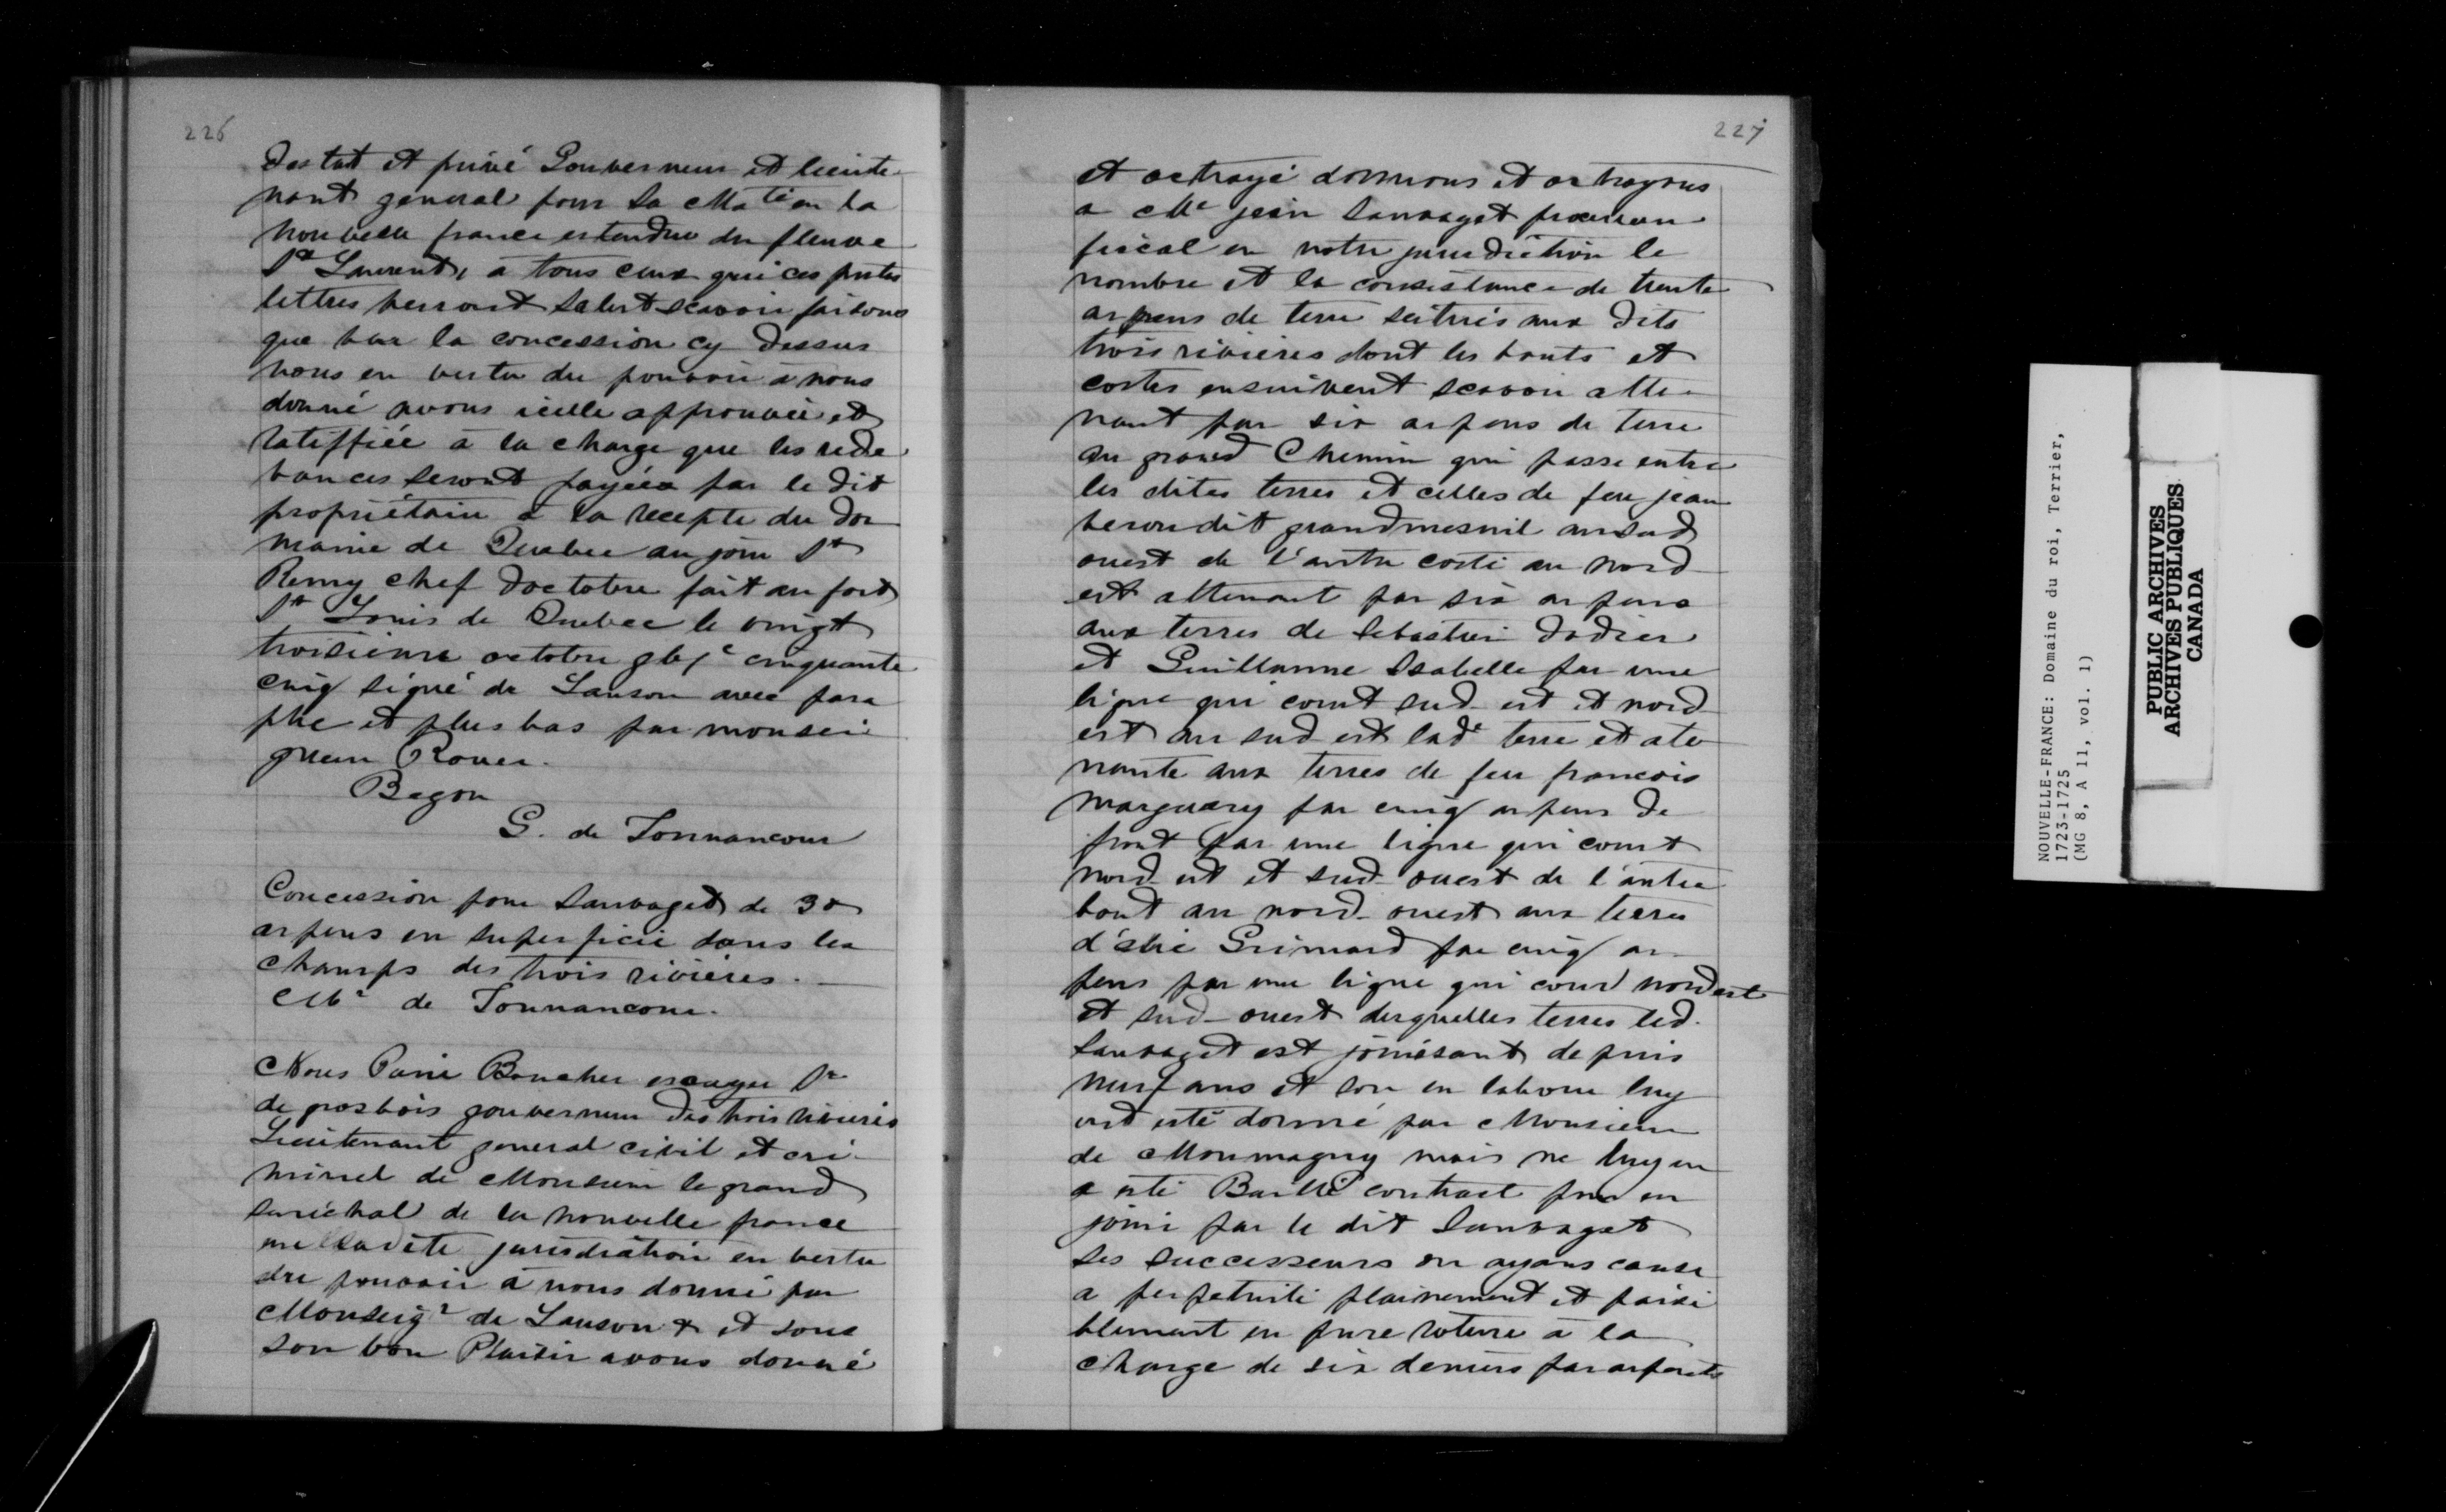 226
destat et privé Gouverneur et lieute-
nant general pour Sa Ma.té en la
nouvelle france estendue du fleuve
St Laurent, a tous ceux qui ces pntes
lettres verront salut scavoir faisons
que vue la concession cy dessus
nous en vertu du pouvoir a nous
donné avons icelle approuvée et
ratiffiée a la charge que les rede
vances seront payées par le dit
propriétaire a la recepte du do
maine de Quebec au jour St
Remy chef doctobre fait au fort
St Louis de Quebec le vingt
troisieme octobre cinquante
cinq signé de Lauson avec para
phe et plus bas par monsei
gneur Rouer.
Begon
G. de Tonnancour
Concession pour Sauvaget de 30
arpens en superficie dans les
champs des trois rivières.
Mr de Tonnancour.
Nous Pierre Boucher escuyer Sr
de grosbois gouverneur des trois rivieres
Lieutenant general civil et cri-
minel de Monsieur le grand
senéchal de la nouvelle france
en la dite jurisdiction en vertu
du pouvoir à nous donné par
Monseigr de Lauson & et sous
son bon Plaisir avons donné
227
et octroyé donnons et octroyons
a Me jean Sauvaget procureur
fiscal en notre jurisdiction le
nombre et la consistance de trente
arpens de terre scitués aux dits
trois rivieres dont les bouts et
costes ensuivent scavoir atte-
nant par six arpens de terre
au grand Chemin qui passe entre
les dites terres et celles de feu jean
veron dit grandmesnil au sud
ouest de l'autre costé au nord
est attenant par six arpens
aux terres de Sebastien dodier
et Guillaume Isabelle par une
ligne qui court sud-est et nord
est au sud est lade terre et ate
nante aux terres de feu francois
marguery par cinq arpens de
front par une ligne qui court
nord-est et sud-ouest de l'autre
bout au nord-ouest aux terres
d'élie Grimard par cinq ar-
pens par une ligne qui cour nord est
et sud-ouest desquelles terres led.
Sauvaget est jouissant depuis
neuf ans et son en labour luy
ont esté donné par Monsieur
de Monmagny mais ne luy en
a esté Baillé contract pour en
jouir par le dit Sauvaget
ses successeurs ou ayans cause
a perpetuité plainement et paisi
blement en pure roture à la
charge de six deniers par arpents
NOUVELLE-FRANCE: Domaine du roi, Terrier,
1723-1725
(MG 8, A 11, vol. 1)
PUBLIC ARCHIVES
ARCHIVES PUBLIQUES
CANADA